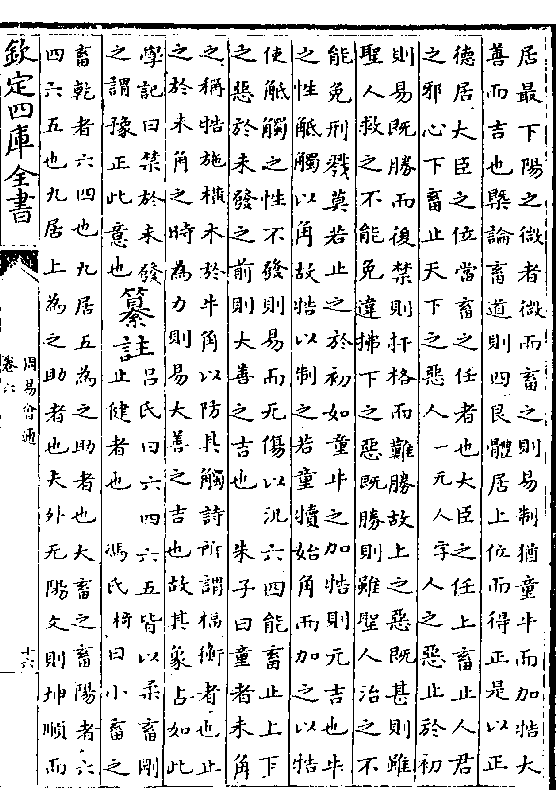 居最下陽之微者微而畜之則易制猶童牛而加牿大
善而吉也槩論畜道則四艮體居上位而得正是以正
德居大臣之位當畜之任者也大臣之任上畜止人君
之邪心下畜止天下之惡人 一元人字 人之惡止於初
則易既勝而復禁則扞格而難勝故上之惡既甚則雖
聖人救之不能免違拂下之惡既勝則雖聖人治之不
能免刑戮莫若止之於初如童牛之加牿則元吉也牛
之性觝觸以角故牿以制之若童犢始角而加之以牿
使觝觸之性不發則易而无傷以況六四能畜止上下
之惡於未發之前則大善之吉也 朱子曰童者未角
之稱牿施橫木於牛角以防其觸詩所謂楅衡者也止
之於未角之時為力則易大善之吉也故其象占如此
學記曰禁於未發
之謂豫正此意也纂註呂氏曰六四六五皆以柔畜剛
止健者也 馮氏椅曰小畜之
畜乾者六四也九居五為之助者也大畜之畜陽者六
四六五也九居上為之助者也夫外无陽爻則坤順而
欽定四庫全書
周易會通
卷六
十六